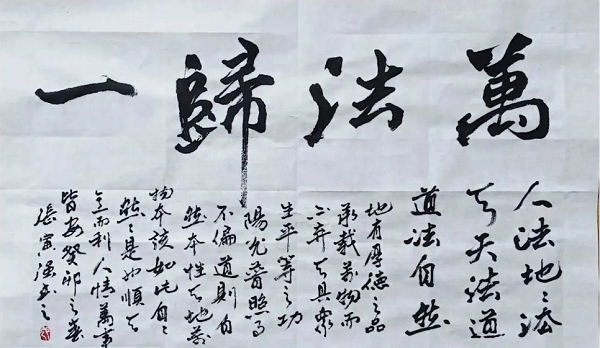 萬法歸一
人法地〻法
天天法道
道法自然
地有厚德之品
承载萬物而
不弃天具眾
生平等之功
陽光普照
不偏道則自
然本性天地萬
物本該如此自〻
然〻是如順天
而利人情萬事
皆安癸卯之春
張寅書之